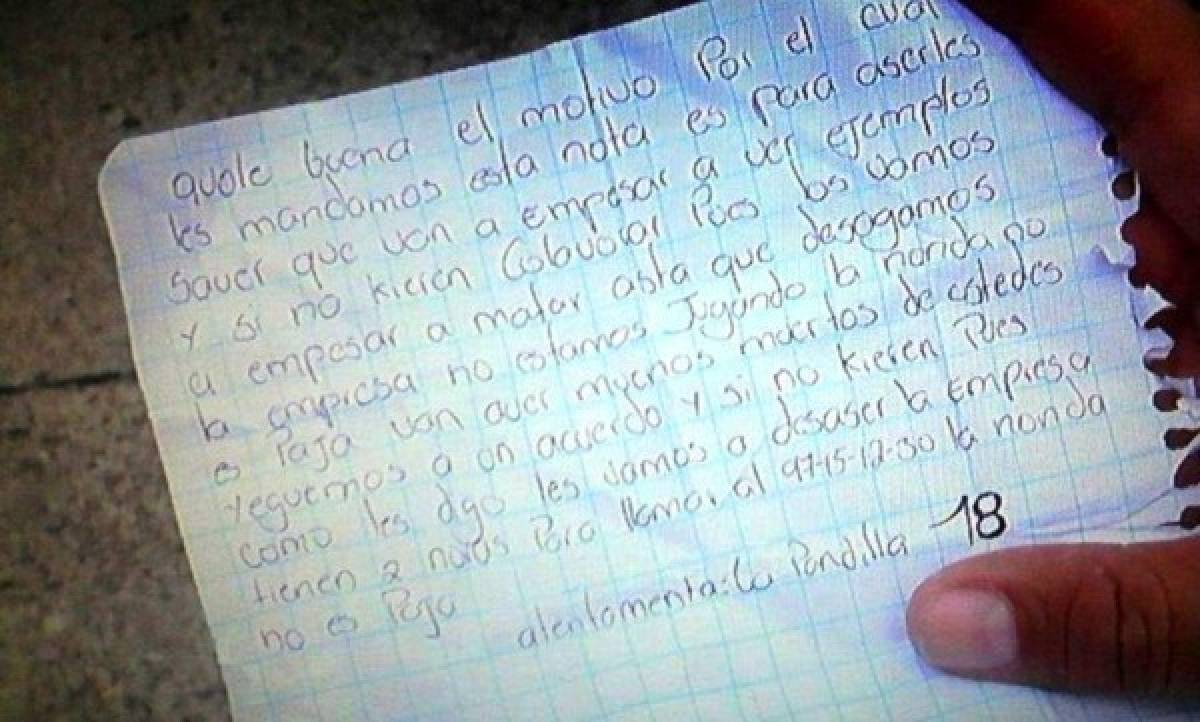 quole buena el motivo Por el cual
les mandamos esta nota es para aserles
Saver que van a empesar a ver ejemplos
y si no kieren Colavorar Pues los vamos
a empesar a matar asta que desagamos
la empresa no estamos Jugando la nonda no
es Paja van aver myenos muertos de ustedes
yeguemos a un acuerdo y si no kieren Pues
como les digo les vamos a desaser la Empresa
tienen 2 horas Para llamar al 97-15-12-30 la nonda
no es Paja
atentamenta: La Pandilla 18